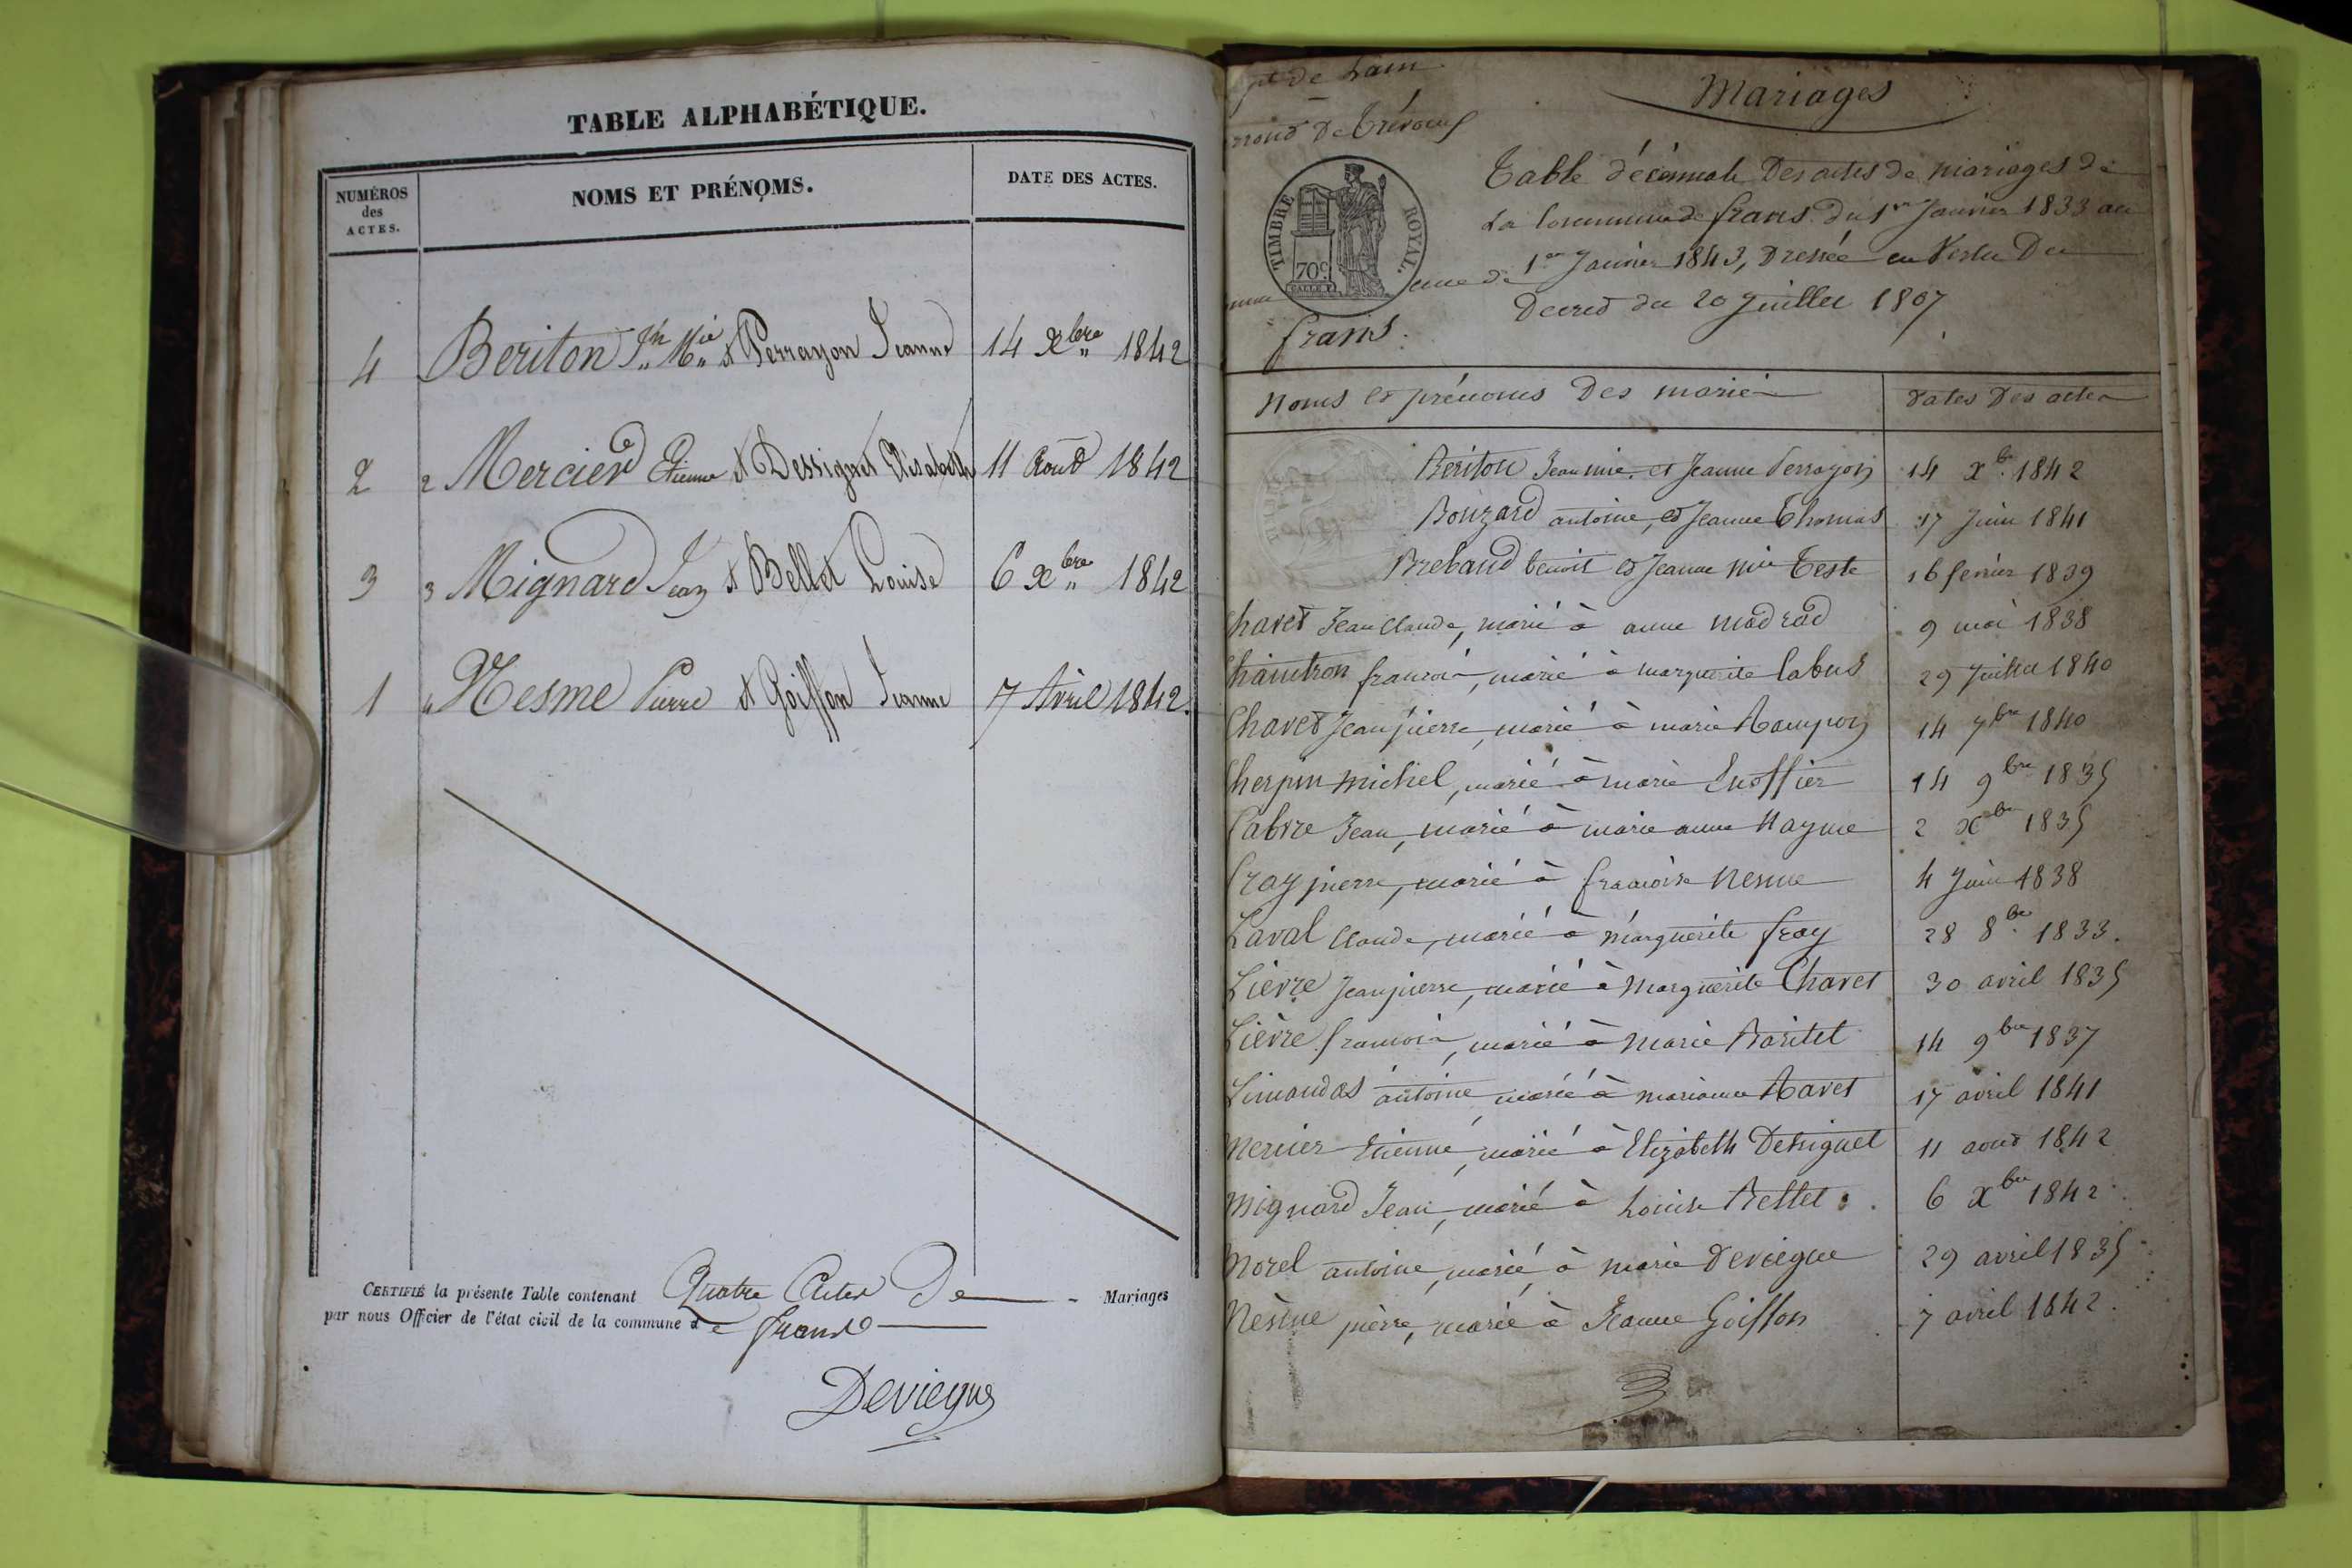 TABLE ALPHABÉTIQUE.
NUMÉROS des ACTES.
NOMS ET PRÉNOMS.
DATE DES ACTES.
4 Beriton Jn Mie et Perrayon Jeanne 14 Xbre 1842
2 2 Mercier Etienne et Dessignet Elisabeth 11 Aout 1842
3 3 Mignard Jean et Bellet Louise 6 Xbre 1842
1 Nesme Pierre et Goiffon Jeanne 7 Avril 1842.
CERTIFIÉ la présente Table contenant Quatre Actes De Mariages
par nous Officier de l'état civil de la commune de frans
Deviegue
pt de Lain
rrond De Trévoux
TIMBRE ROYAL.
70c
une de
frans.
Mariages
Table décennale Des actes de mariages de
La Commune de frans. du 1er Janvier 1833 au
1er Janvier 1843, Dressée en Vertu Du
Decret du 20 Juillet 1807
Noms et prénoms Des mariés
Dates Des actes
Beriton Jean mie. et Jeanne Perrayon 14 Xbre 1842
Bouzard antoine, et Jeanne Thomas 17 Juin 1841
Brebaud benoit et Jeanne mie Teste 16 fevrier 1839
Chavet Jean Claude, marié à anne madrad 9 mai 1838
Chaintron francois, marié à marguerite labus 29 Juillet 1840
Chavet Jean pierre, marié à marie Rampon 14 7bre 1840
Cherpin michel, marié à marie Enoffier 14 9bre 1835
fabvre Jean, marié à marie anne Nayme 2 Xbre 1835
fray pierre, marié à francoise Nesme 4 Juin 1838
Laval Claude, marié à marguerite fray 28 8bre 1833.
Lièvre Jean pierre, marié à Marguerite Chavet 30 avril 1835
Lièvre francois, marié à Marie Baritel 14 9bre 1837
Limandas antoine marié à marianne Ravet 17 avril 1841
Mercier Etienne, marié à Elizabeth Dessignet 11 aout 1842
Mignard Jean, marié à Louise Bellet. 6 Xbre 1842
Morel antoine, marié à marie Deviegue 29 avril 1835
Nesme pierre, marié à Jeanne Goiffon 7 avril 1842.